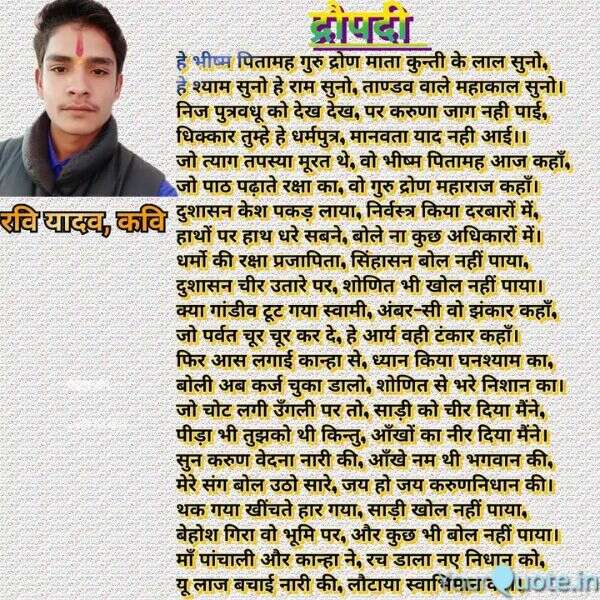 द्रौपदी
हे भीष्म पितामह गुरु द्रोण माता कुन्ती के लाल सुनो,
हे श्याम सुनो हे राम सुनो, ताण्डव वाले महाकाल सुनो।
निज पुत्रवधू को देख देख, पर करुणा जाग नही पाई,
धिक्कार तुम्हे हे धर्मपुत्र, मानवता याद नही आई।।
जो त्याग तपस्या मूरत थे, वो भीष्म पितामह आज कहाँ,
जो पाठ पढ़ाते रक्षा का, वो गुरु द्रोण महाराज कहाँ।
रवि यादव, कवि
दुशासन केश पकड़ लाया, निर्वस्त्र किया दरबारों में,
हाथों पर हाथ धरे सबने, बोले ना कुछ अधिकारों में।
धर्मो की रक्षा प्रजापिता, सिंहासन बोल नहीं पाया,
दुशासन चीर उतारे पर, शोणित भी खोल नहीं पाया।
क्या गांडीव टूट गया स्वामी, अंबर-सी वो झंकार कहाँ,
जो पर्वत चूर चूर कर दे, हे आर्य वही टंकार कहाँ।
फिर आस लगाई कान्हा से, ध्यान किया घनश्याम का,
बोली अब कर्ज चुका डालो, शोणित से भरे निशान का।
जो चोट लगी उँगली पर तो, साड़ी को चीर दिया मैंने,
पीड़ा भी तुझको थी किन्तु, आँखों का नीर दिया मैंने।
सुन करुण वेदना नारी की, आँखे नम थी भगवान की,
मेरे संग बोल उठो सारे, जय हो जय करुणनिधान की।
थक गया खींचते हार गया, साड़ी खोल नहीं पाया,
बेहोश गिरा वो भूमि पर, और कुछ भी बोल नहीं पाया।
माँ पांचाली और कान्हा ने, रच डाला नए निधान को,
यू लाज बचाई नारी की, लौटाया
YourQuote.in